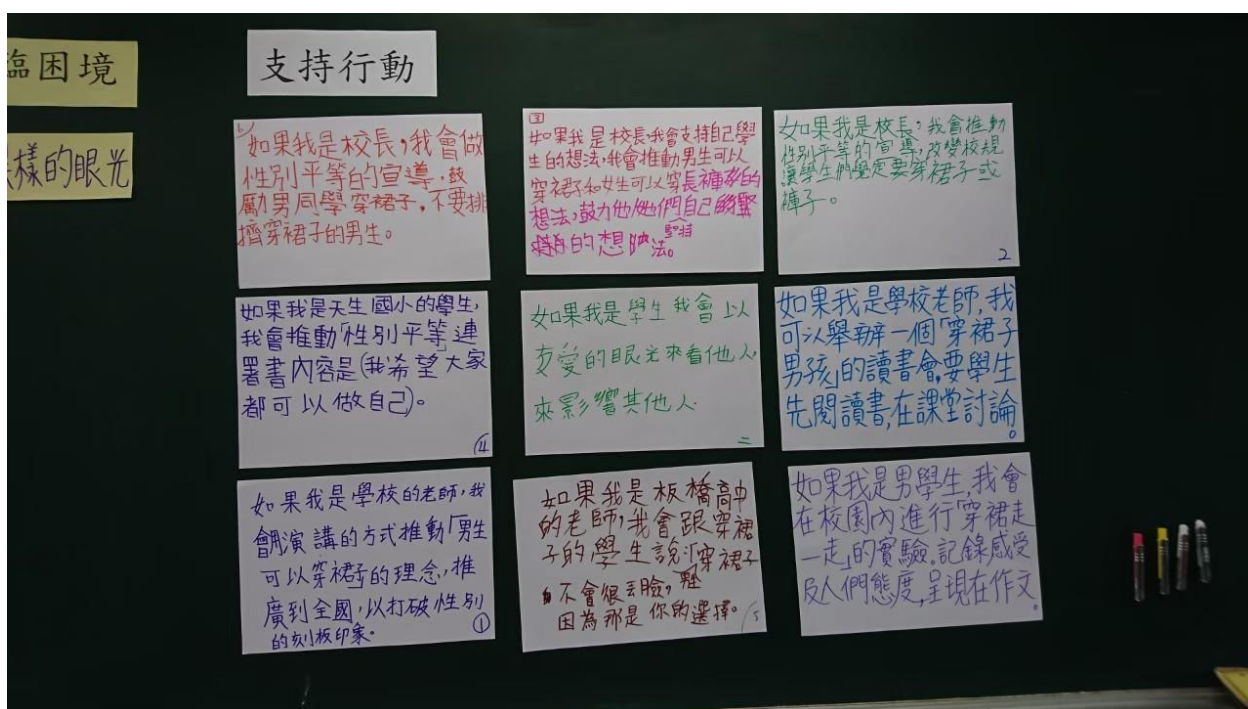 臨困境
樣的眼光
支持行動
如果我是校長，我會做
性別平等的宣導，鼓
勵男同學穿裙子，不要排
擠穿裙子的男生。
3
如果我是校長，我會支持自己學
生的想法，我會推動男生可以
穿裙子和女生可以穿長褲的
想法，鼓力他/她們自己
堅持
的想法。
如果我是校長，我會推動
性別平等的宣導，改變校規
讓學生們覺定要穿裙子或
褲子。
2
如果我是天生國小的學生，
我會推動「性別平等」連
署書內容是(我希望大家
都可以做自己)。
4
如果我是學生我會以
友愛的眼光來看他人，
來影響其他人
二
如果我是學校老師，我
可以舉辦一個「穿裙子
男孩」的讀書會，要學生
先閱讀書，在課堂討論。
如果我是學校的老師，我
會用演講的方式推動「男生
可以穿裙子」的理念，推
廣到全國，以打破性別
的刻板印象。
①
如果我是板橋高中
的老師，我會跟穿裙
子的學生說：「穿裙子
不會很丟臉，
因為那是你的選擇。
5
如果我是男學生，我會
在校園內進行「穿裙走
一走」的實驗。記錄感受
及人們態度，呈現在作文。